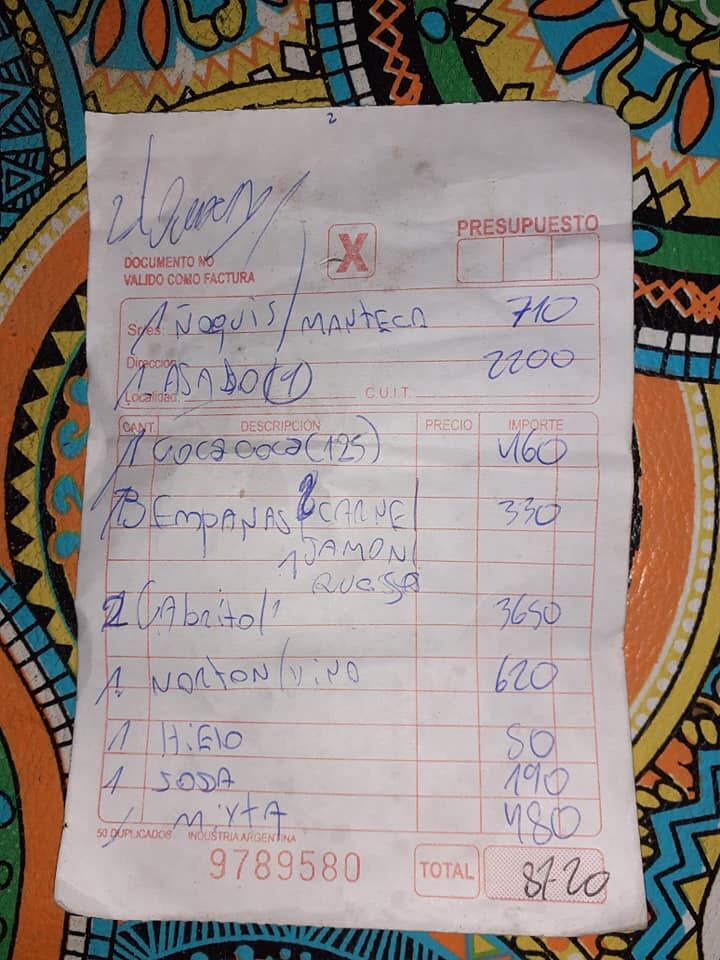 2
PRESUPUESTO
X
DOCUMENTO NO
VALIDO COMO FACTURA
Sres. 1 ÑOQUIS/MANTECA 710
Dirección
1 ASADO (1) 2200
Localidad: C.U.I.T.
CANT. DESCRIPCIÓN PRECIO IMPORTE
1 COCA COCA (125) 460
3 EMPANAS 2 CARNE/ 330
1 JAMON/
2 CAbrito/1 3650
1 NORTON/VINO 620
1 HIELO 80
1 SODA 190
1 MIXTA 480
50 DUPLICADOS INDUSTRIA ARGENTINA
9789580
TOTAL 8720